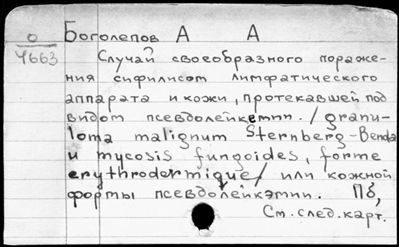 О
4663
Боголепов А А
Случай своеобразного пораже-
ния сифилисом лимфатического
аппарата и кожи, протекавшей под
видом псевдолейкемии. /granu-
loma malignum Sternberg-Benda
и mycosis fungoides, forme
erythrodermique/ или кожной
формы псевдолейкэмии. Пб,
См. след. карт.